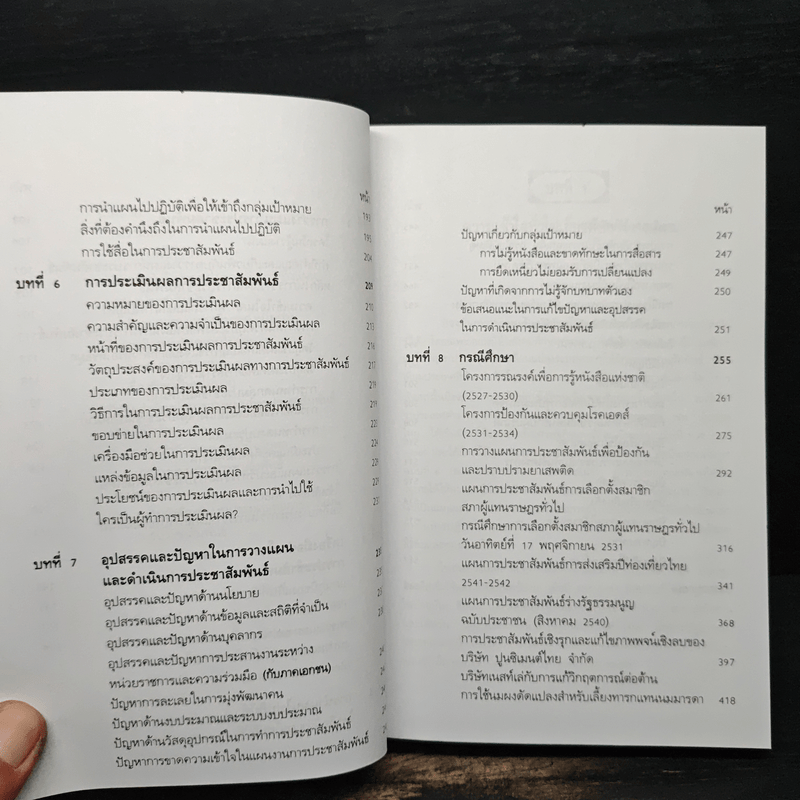 หน้า
การนำแผนไปปฏิบัติเพื่อให้เข้าถึงกลุ่มเป้าหมาย 193
สิ่งที่ต้องคำนึงถึงในการนำแผนไปปฏิบัติ 195
การใช้สื่อในการประชาสัมพันธ์ 204
บทที่ 6 การประเมินผลการประชาสัมพันธ์ 209
ความหมายของการประเมินผล 210
ความสำคัญและความจำเป็นของการประเมินผล 213
หน้าที่ของการประเมินผลการประชาสัมพันธ์ 216
วัตถุประสงค์ของการประเมินผลทางการประชาสัมพันธ์ 217
ประเภทของการประเมินผล 219
วิธีการในการประเมินผลการประชาสัมพันธ์ 219
ขอบข่ายในการประเมินผล
เครื่องมือช่วยในการประเมินผล
แหล่งข้อมูลในการประเมินผล
ประโยชน์ของการประเมินผลและการนำไปใช้
ใครเป็นผู้ทำการประเมินผล?
บทที่ 7 อุปสรรคและปัญหาในการวางแผน
และดำเนินการประชาสัมพันธ์
อุปสรรคและปัญหาด้านนโยบาย
อุปสรรคและปัญหาด้านข้อมูลและสถิติที่จำเป็น
อุปสรรคและปัญหาด้านบุคลากร
อุปสรรคและปัญหาการประสานงานระหว่าง
หน่วยราชการและความร่วมมือ (กับภาคเอกชน)
ปัญหาการละเลยในการมุ่งพัฒนาคน
ปัญหาด้านงบประมาณและระบบงบประมาณ
ปัญหาด้านวัสดุอุปกรณ์ในการทำการประชาสัมพันธ์
ปัญหาการขาดความเข้าใจในแผนงานการประชาสัมพันธ์
หน้า
ปัญหาเกี่ยวกับกลุ่มเป้าหมาย 247
การไม่รู้หนังสือและขาดทักษะในการสื่อสาร 247
การยึดเหนี่ยวไม่ยอมรับการเปลี่ยนแปลง 249
ปัญหาที่เกิดจากการไม่รู้จักบทบาทตัวเอง 250
ข้อเสนอแนะในการแก้ไขปัญหาและอุปสรรค
ในการดำเนินการประชาสัมพันธ์ 251
บทที่ 8 กรณีศึกษา 255
โครงการรณรงค์เพื่อการรู้หนังสือแห่งชาติ
(2527-2530) 261
โครงการป้องกันและควบคุมโรคเอดส์
(2531-2534) 275
การวางแผนการประชาสัมพันธ์เพื่อป้องกัน
และปราบปรามยาเสพติด 292
แผนการประชาสัมพันธ์การเลือกตั้งสมาชิก
สภาผู้แทนราษฎรทั่วไป
กรณีศึกษาการเลือกตั้งสมาชิกสภาผู้แทนราษฎรทั่วไป
วันอาทิตย์ที่ 17 พฤศจิกายน 2531 316
แผนการประชาสัมพันธ์การส่งเสริมปีท่องเที่ยวไทย
2541-2542 341
แผนการประชาสัมพันธ์ร่างรัฐธรรมนูญ
ฉบับประชาชน (สิงหาคม 2540) 368
การประชาสัมพันธ์เชิงรุกและแก้ไขภาพพจน์เชิงลบของ
บริษัท ปูนซิเมนต์ไทย จำกัด 397
บริษัทเนสท์เล่กับการแก้วิกฤตการณ์ต่อต้าน
การใช้นมผงดัดแปลงสำหรับเลี้ยงทารกแทนนมมารดา 418